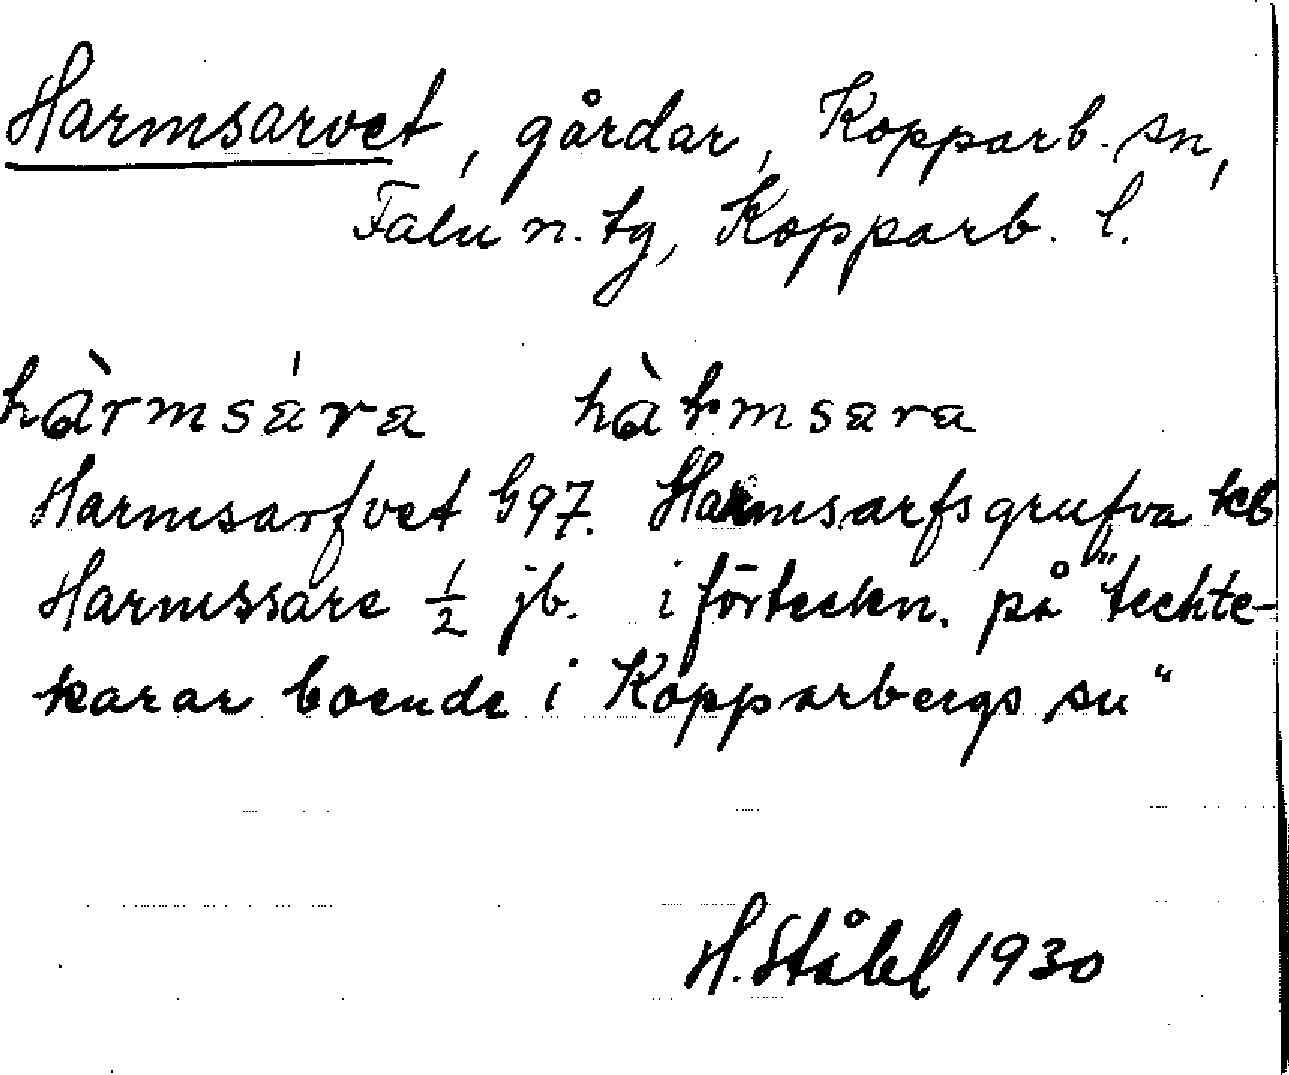 Harmsarvet, gårdar, Kopparb. sn,
Falu n. tg, Kopparb. l.
hàrmsára hàrmsara
Harmsarfvet G97. Harmsarfsgrufva kb
Harmssare 1/2 jb. i förteckn. på "techte-
karar boende i Kopparbergs sn"
H. Ståhl 1930